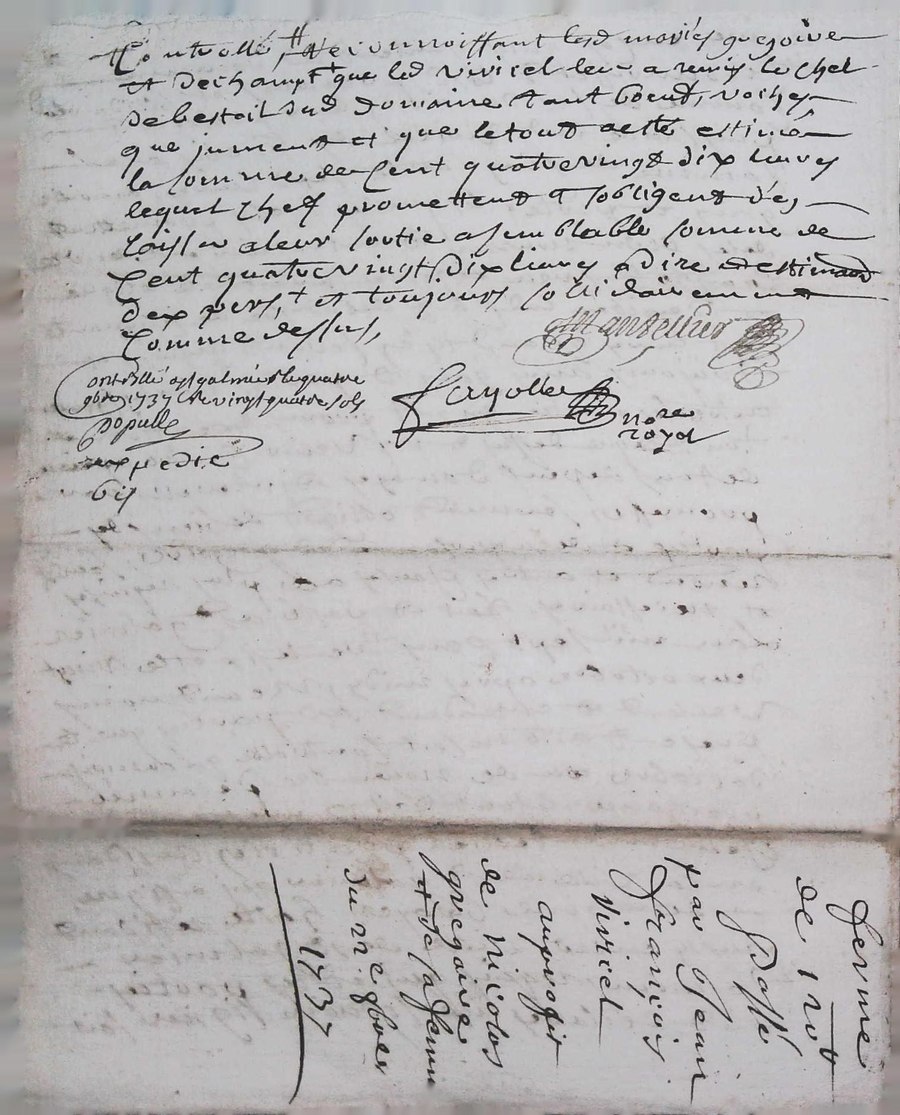 Controllé # Reconnoissant lesd mariés gregoire
et dechampt que led viricel leur a remis le chef
de bestail dud domaine tant boeuf, vaches
que jument et que le tout aesté estimé
la somme de Cent quatrevingt dix livres
lequel chef promettent et sobligent de
laisser a leur sortie a semblable somme de
Cent quatrevingt dix livres a dire et estimaõn
dexpers, + et toujours solidairement
Comme dessus,
Mandellier
Controllé a st galmier le quatre
9bre 1737 vingt quatre sols
Fayolle
nore
royal
populle
expedié
bis
ferme
de 120lt
passé
par Jean
françois
viricel
auproffit
de nicolas
gregoire
et de sa femme
du 2e 9bre
1737